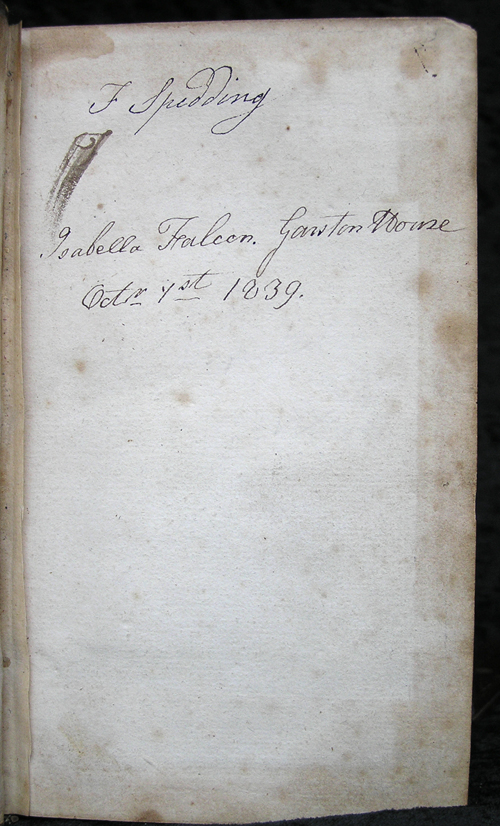 F Spedding
Isabella Falcon. Garston House
Octr 1st 1839.